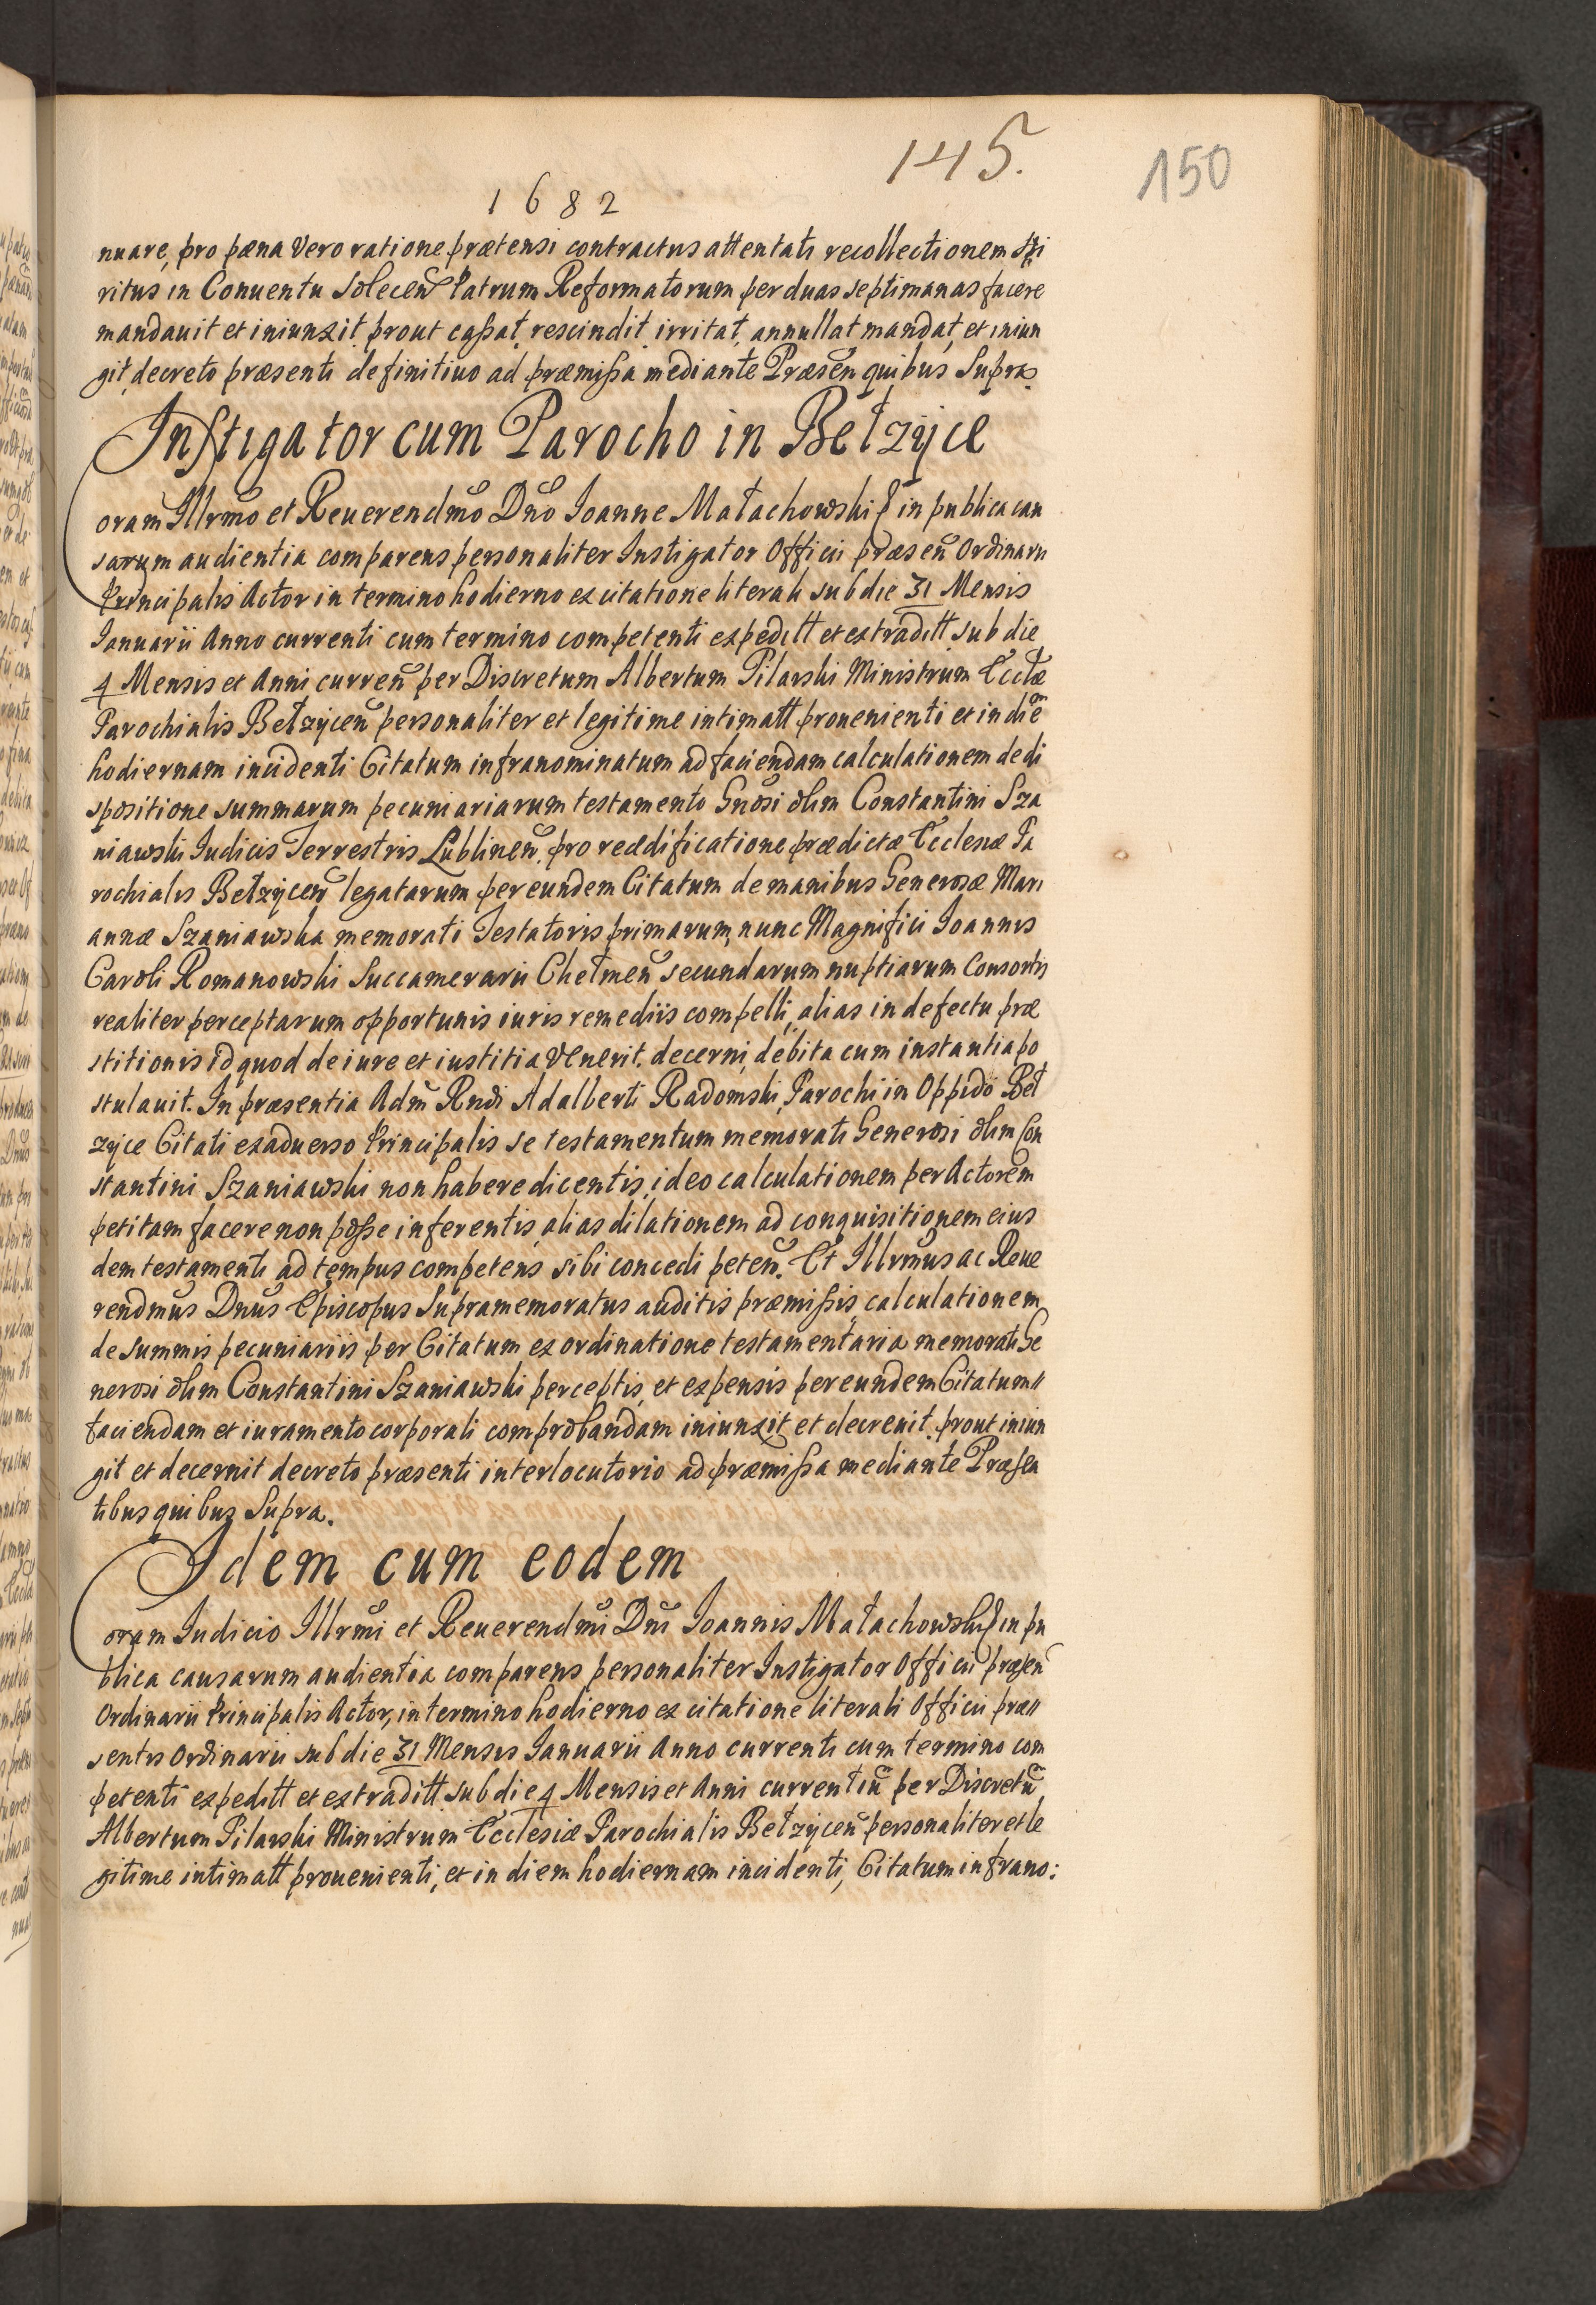 145.
150
1682
nuare, pro pæna vero ratione prætensi contractus attentati recollectionem Spi
ritus in Conuentu Solecen̄ Patrum Reformatorum per duas septimanas facere
mandauit et iniunxit, prout caßat, rescindit, irritat, annullat mandat, et iniun
git, decreto præsenti definitiuo ad præmißa mediante Præsen̄ quibus Supra.
Instigator cum Parocho in Bełzÿce
Coram Illrm̃o et Reuerendm̃o Dño Ioanne Małachowski in publica cau
sarum audientia comparens personaliter Instigator Officii præsen̄ Ordinarii
Principalis Actor in termino hodierno ex citatione literali sub die 31 Mensis
Ianuarii Anno currenti cum termino competenti expeditt et extraditt sub die
4 Mensis et Anni curren̄ per Discretum Albertum Pilarski Ministrum Ecclæ
Parochialis Bełzÿcen̄ personaliter et legitime intimatt prouenienti et in diẽ
hodiernam incidenti Citatum infranominatum ad faciendam calculationem de di
spositione summarum pecuniariarum testamento Gñosi olim Constantini Sza
niawski Iudicis Terrestris Lublinen̄. pro reædificatione prædictæ Ecclesiæ Pa
rochialis Bełzÿcen̄ legatarum per eundem Citatum de manibus Generosæ Mari
annæ Szaniawska memorati Testatoris primarum, nunc Magnifici Ioannis
Caroli Romanowski Succamerarii Chełmen̄ secundarum nuptiarum Consortis
realiter perceptarum opportunis iuris remediis compelli, alias in defectu præ
stitionis id quod de iure et iustitia venerit. decerni, debita cum instantia po
stulauit. In præsentia Adm̃ Rñdi Adalberti Radomski, Parochi in Oppido Beł
zÿce Citati ex aduerso Principalis se testamentum memorati Generosi olim Con
stantini Szaniawski non habere dicentis, ideo calculationem per Actorem
petitam facere non poße inferentis, alias dilationem ad conquisitionem eius
dem testamenti ad tempus competens sibi concedi peten̄. Et Illrm̃us ac Reue
rendmus Dnus Episcopus Supramemoratus auditis præmißis, calculationem
de summis pecuniariis per Citatum ex ordinatione testamentaria memorati Ge
nerosi olim Constantini Szaniawski perceptis, et expensis per eundem Citatum
faciendam et iuramento corporali comprobandam iniunxit et decreuit. prout iniun
git et decernit decreto præsenti interlocutorio ad præmißa mediante Præsen
tibus quibus Supra.
Idem cum eodem
Coram Iudicio Illrm̃i et Reuerendm̃i Dñi Ioannis Małachowski in pu
blica causarum audientia comparens personaliter Instigator Officii præsen̄
Ordinarii Principalis Actor, in termino hodierno ex citatione literali Officii præ
sentis Ordinarii sub die 31 Mensis Ianuarii Anno currenti cum termino com
petenti expeditt et extraditt sub die 4 Mensis et Anni currentiũ per Discretũ
Albertum Pilarski Ministrum Ecclesiæ Parochialis Bełzÿcen̄ personaliter et le
gitime intimatt prouenienti, et in diem hodiernam incidenti, Citatum infrano: